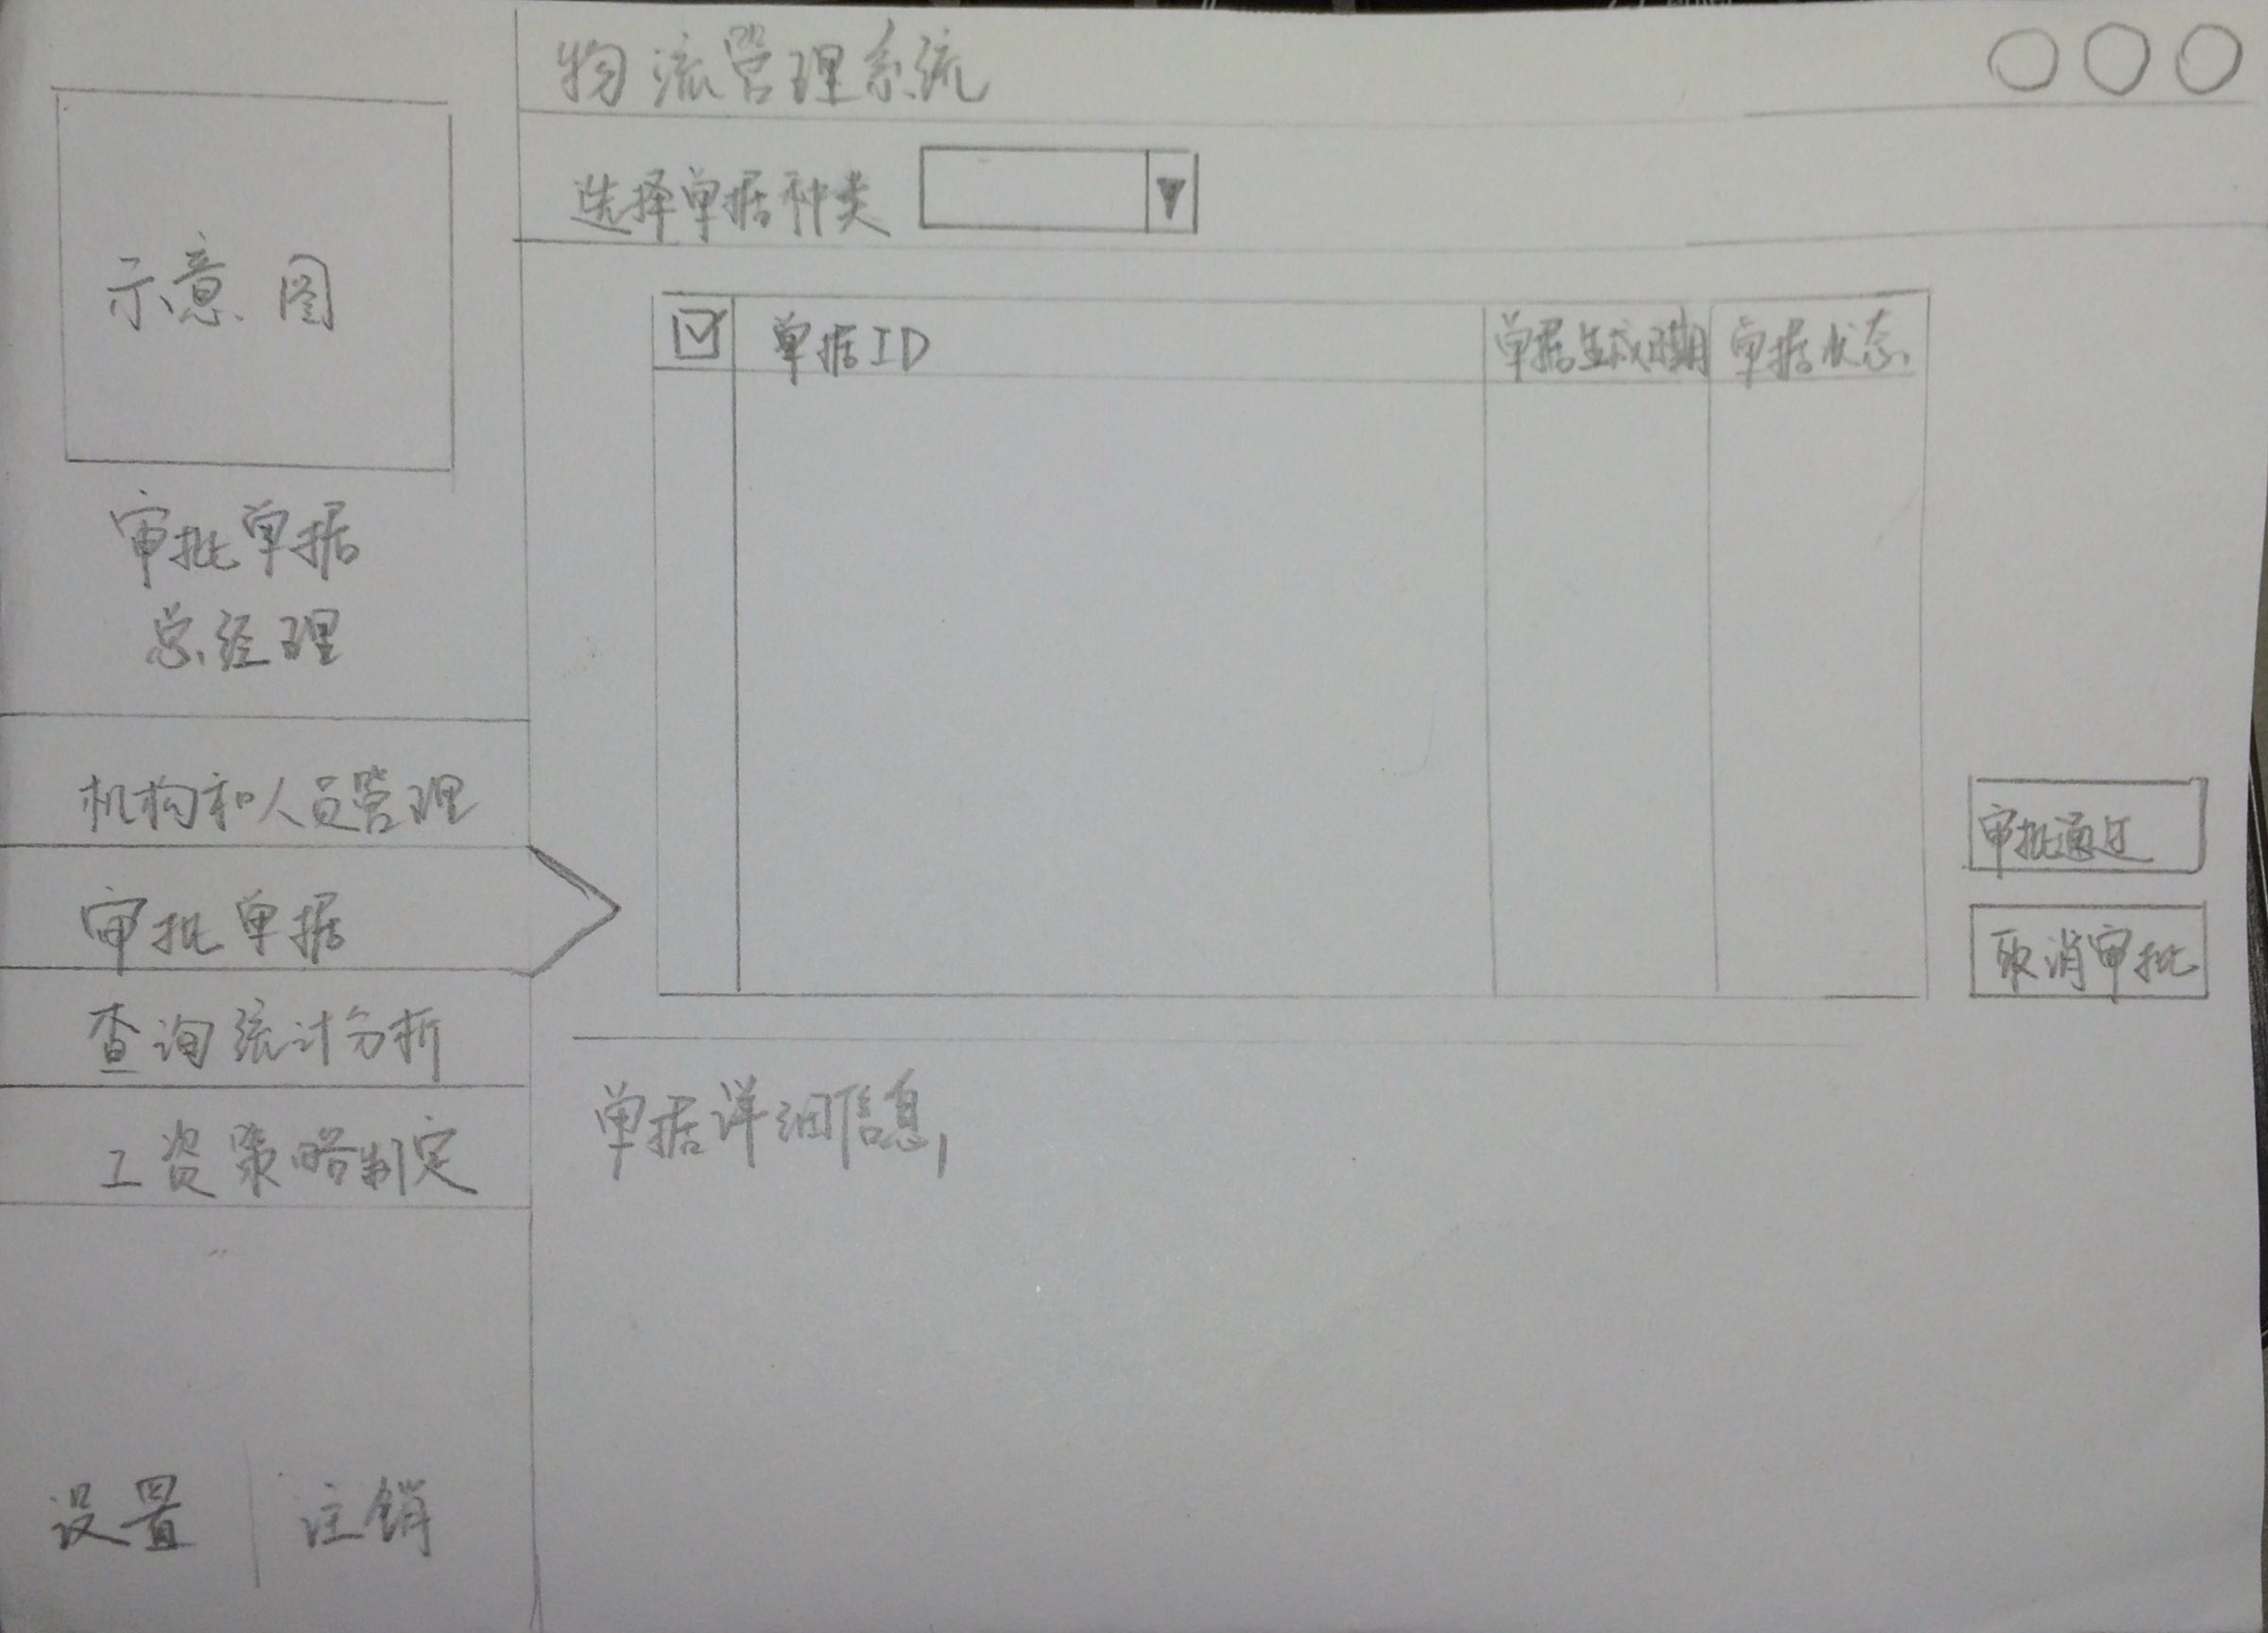 物流管理系统
选择单据种类
示意图
审批单据
总经理
机构和人员管理
审批单据
查询统计分析
工资策略制定
设置
注销
单据ID
单据生成日期
单据状态
审批通过
取消审批
单据详细信息